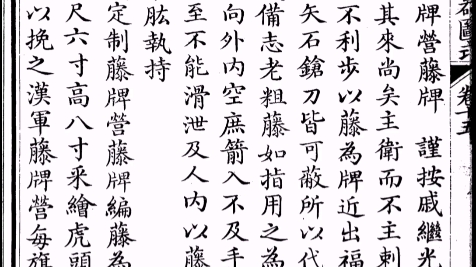 牌營藤牌 謹按戚繼光
其來尚矣主衛而不主刺
不利步以藤為牌近出福
矢石鎗刀皆可蔽所以代
備志老粗藤如指用之為
向外內空庶箭入不及手
至不能滑泄及人內以藤
肱執持
定制藤牌營藤牌編藤為
尺六寸高八寸采繪虎頭
以挽之漢軍藤牌營每旗